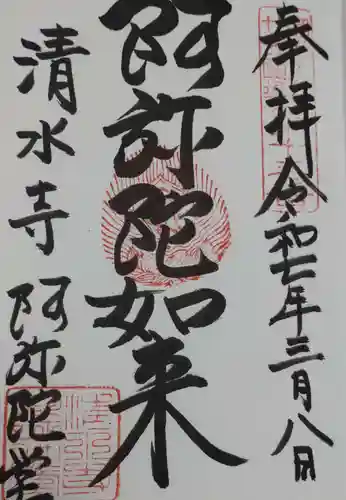 奉拝 令和七年三月八日
阿弥陀如来
清水寺 阿弥陀堂